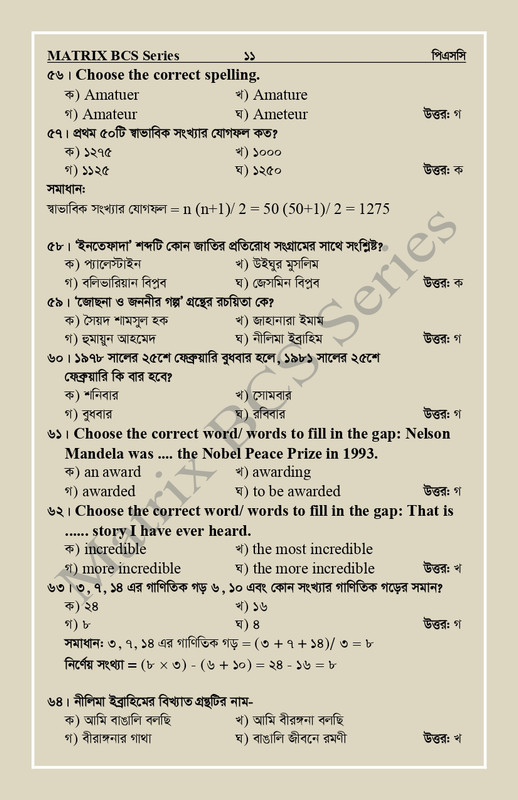 MATRIX BCS Series ১১ পিএসসি
৫৬। Choose the correct spelling.
ক) Amatuer খ) Amature
গ) Amateur ঘ) Ameteur উত্তর: গ
৫৭। প্রথম ৫০টি স্বাভাবিক সংখ্যার যোগফল কত?
ক) ১২৭৫ খ) ১০০০
গ) ১১২৫ ঘ) ১২৫০ উত্তর: ক
সমাধান:
স্বাভাবিক সংখ্যার যোগফল = n (n+1)/ 2 = 50 (50+1)/ 2 = 1275
৫৮। ‘ইনতেফাদা’ শব্দটি কোন জাতির প্রতিরোধ সংগ্রামের সাথে সংশ্লিষ্ট?
ক) প্যালেস্টাইন খ) উইঘুর মুসলিম
গ) বলিভারিয়ান বিপ্লব ঘ) জেসমিন বিপ্লব উত্তর: ক
৫৯। ‘জোছনা ও জননীর গল্প’ গ্রন্থের রচয়িতা কে?
ক) সৈয়দ শামসুল হক খ) জাহানারা ইমাম
গ) হুমায়ুন আহমেদ ঘ) নীলিমা ইব্রাহিম উত্তর: গ
৬০। ১৯৭৮ সালের ২৫শে ফেব্রুয়ারি বুধবার হলে, ১৯৮১ সালের ২৫শে
ফেব্রুয়ারি কি বার হবে?
ক) শনিবার খ) সোমবার
গ) বুধবার ঘ) রবিবার উত্তর: গ
৬১। Choose the correct word/ words to fill in the gap: Nelson
Mandela was .... the Nobel Peace Prize in 1993.
ক) an award খ) awarding
গ) awarded ঘ) to be awarded উত্তর: গ
৬২। Choose the correct word/ words to fill in the gap: That is
...... story I have ever heard.
ক) incredible খ) the most incredible
গ) more incredible ঘ) the more incredible উত্তর: খ
৬৩। ৩, ৭, ১৪ এর গাণিতিক গড় ৬, ১০ এবং কোন সংখ্যার গাণিতিক গড়ের সমান?
ক) ২৪ খ) ১৬
গ) ৮ ঘ) ৪ উত্তর: গ
সমাধান: ৩, ৭, ১৪ এর গাণিতিক গড় = (৩ + ৭ + ১৪)/ ৩ = ৮
নির্ণেয় সংখ্যা = (৮ × ৩) - (৬ + ১০) = ২৪ - ১৬ = ৮
৬৪। নীলিমা ইব্রাহিমের বিখ্যাত গ্রন্থটির নাম-
ক) আমি বাঙালি বলছি খ) আমি বীরঙ্গনা বলছি
গ) বীরাঙ্গনার গাথা ঘ) বাঙালি জীবনে রমণী উত্তর: খ
Matrix BCS Series